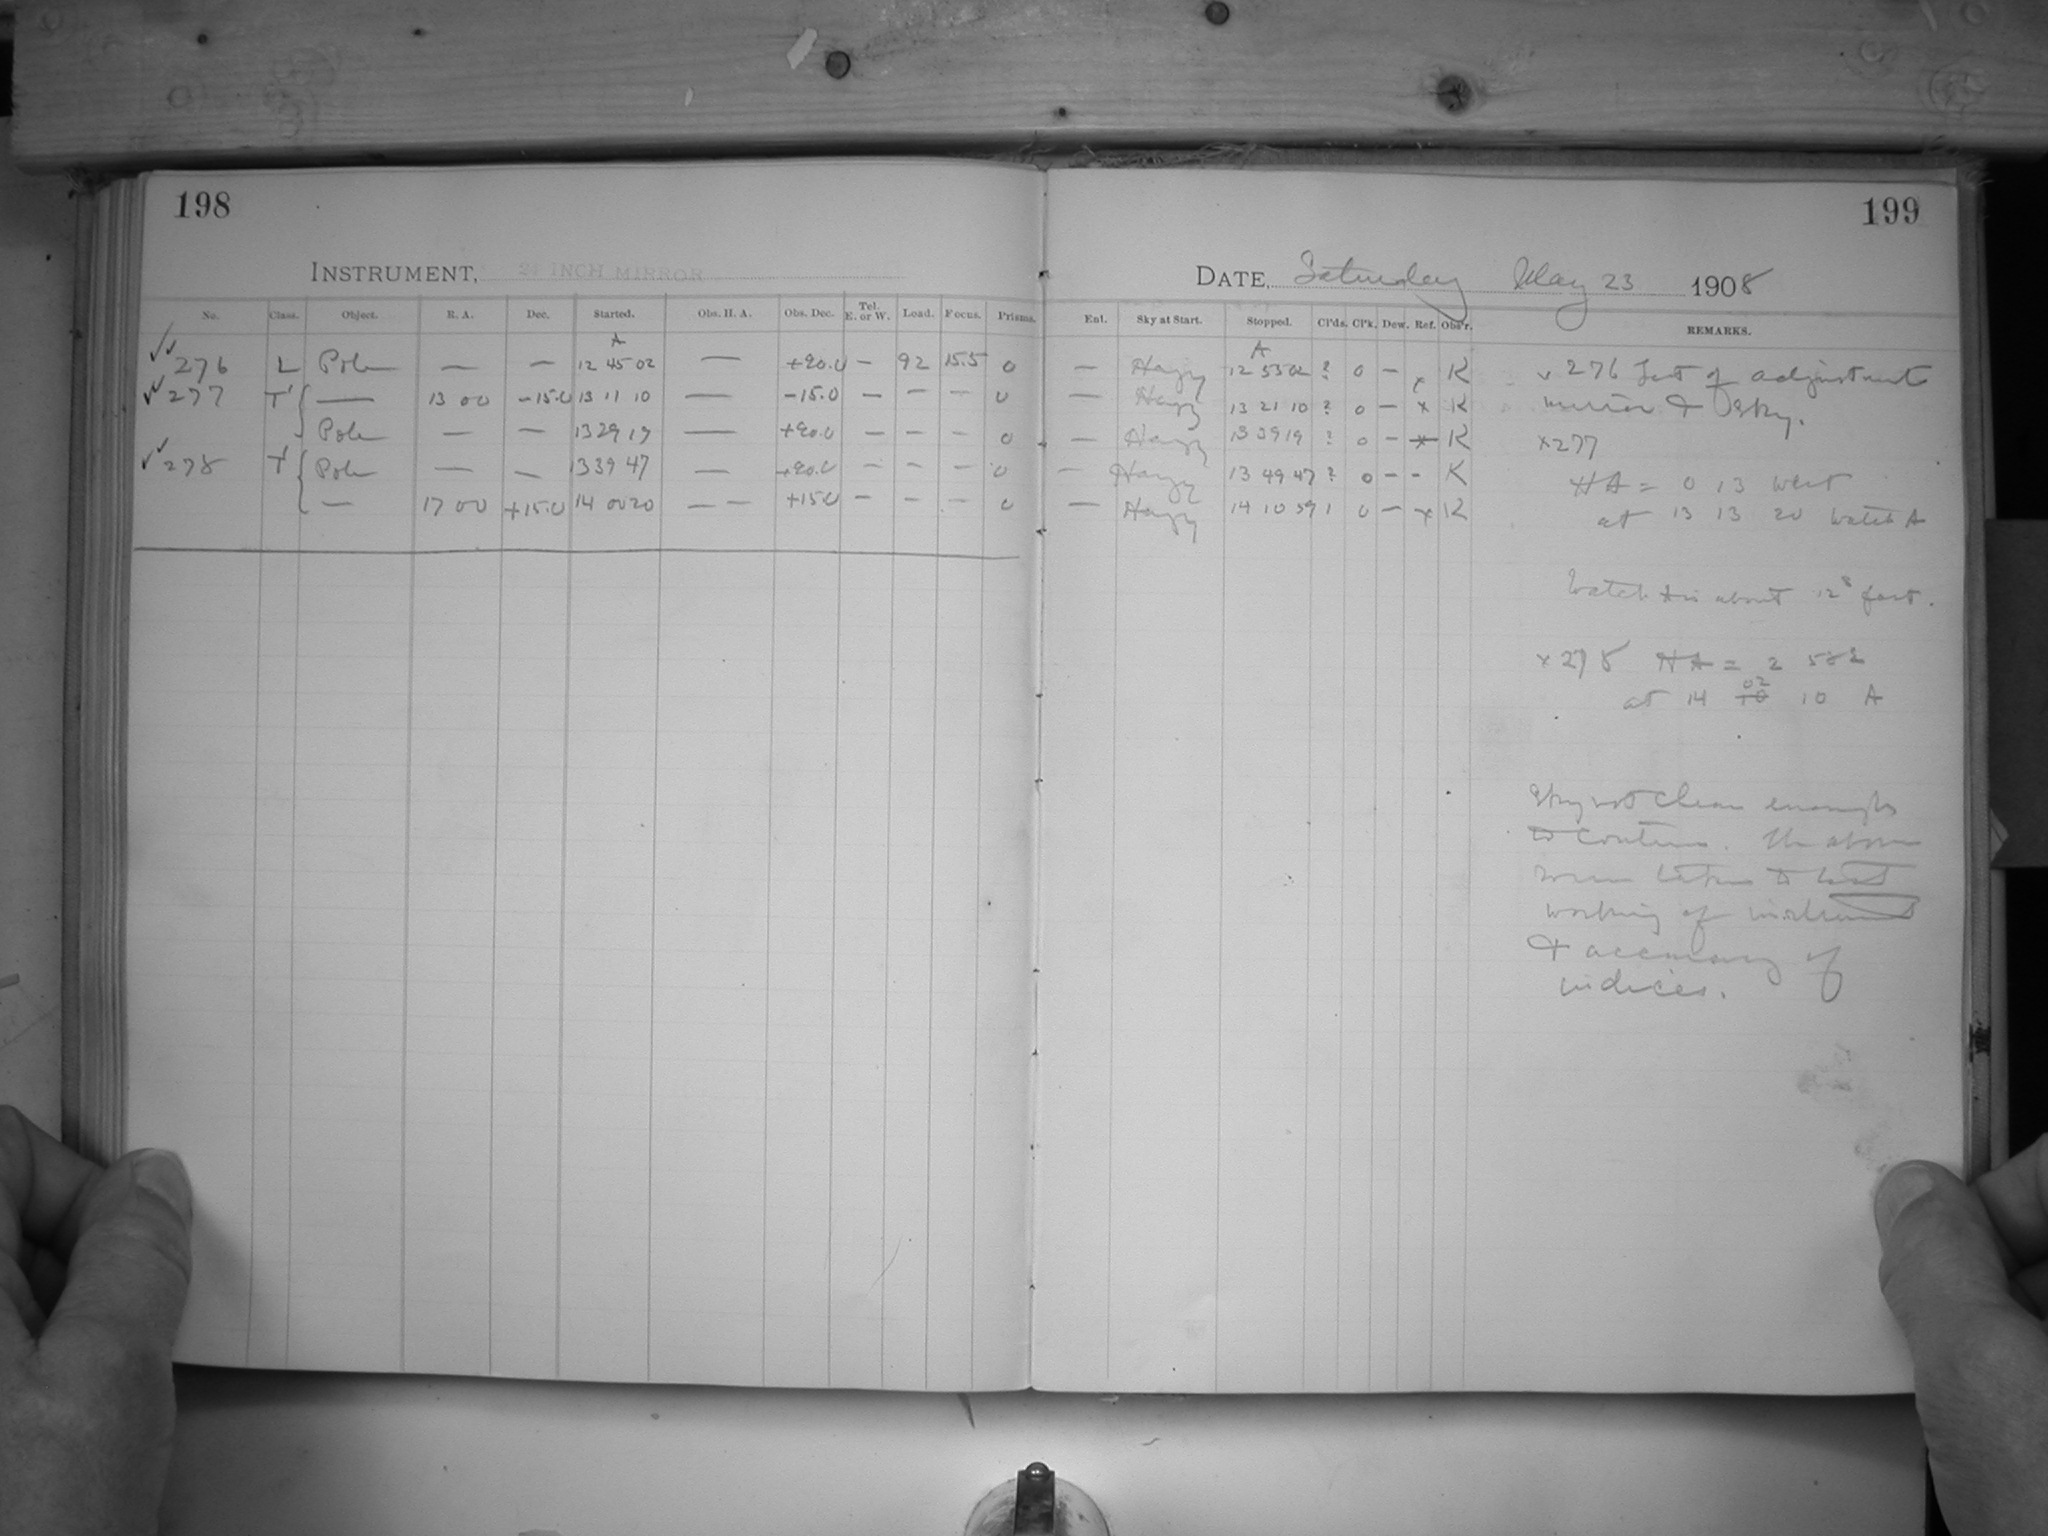 198
199
INSTRUMENT, 24 INCH MIRROR
DATE, Saturday May 23 1908
No. Class. Object. R. A. Dec. Started. Obs. H. A. Obs. Dec. Tel. E. or W. Load. Focus. Prisms. Ent. Sky at Start. Stopped. Cl'ds. Cl'k. Dew. Ref. Obs'r. REMARKS.
A A
✓✓ 276 L Pole — — 12 45 02 — +90.0 — 92 15.5 0 — Hazy 12 55 02 ? 0 — x K
✓✓ 277 T' { — 13 00 -15.0 13 11 10 — -15.0 — — — 0 — Hazy 13 21 10 ? 0 — x K
Pole — — 13 29 19 — +90.0 — — — 0 — Hazy 13 39 19 ? 0 — x K
✓✓ 278 T' { Pole — — 13 39 47 — +90.0 — — — 0 — Hazy 13 49 47 ? 0 — - K
— 17 00 +15.0 14 00 20 — — +15.0 — — — 0 — Hazy 14 10 59 1 0 — x K
x 276 Test of adjustment
mirror & Sky.
x 277
HA = 0 13 West
at 13 13 20 Watch A
Watch A is about 12s fast.
x 278 HA = 2 58
at 14 02 10 A
Sky not clear enough
to continue. The above
were taken to test
working of instrument
& accuracy of
indices.